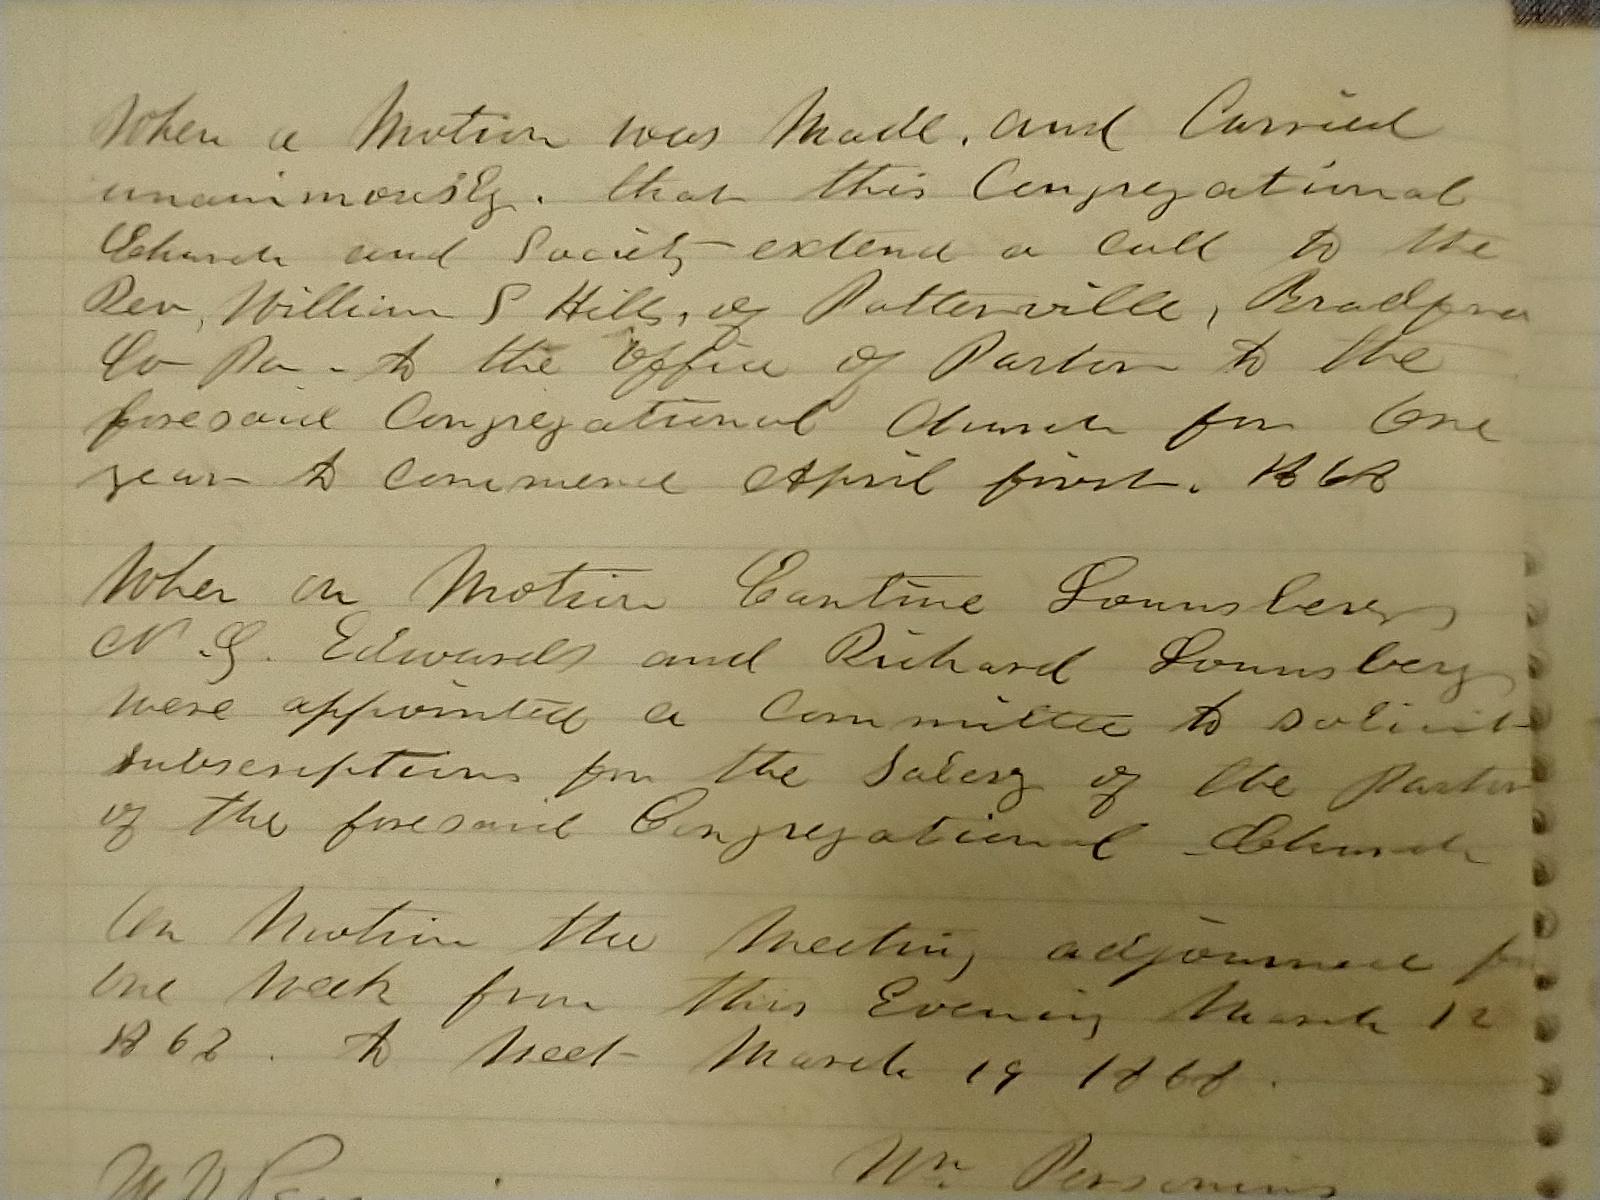 When a Motion was Made, and Carried
unanimously. that this Congregational
Church and Society extend a call to the
Rev, William S Hills, of Potterville, Bradford
Co Pa - to the office of Pastor to the
foresaid Congregational Church for One
year to commence April first. 1868
When on Motion Cantine Lounsbery
N. G. Edwards and Richard Lounsbery
were appointed a Committee to solicit
subscriptions for the Salery of the Pastor
of the foresaid Congregational Church
On Motion the Meeting adjourned for
one week from this Evening March 12
1868. to Meet March 19 1868.
Wm Personius